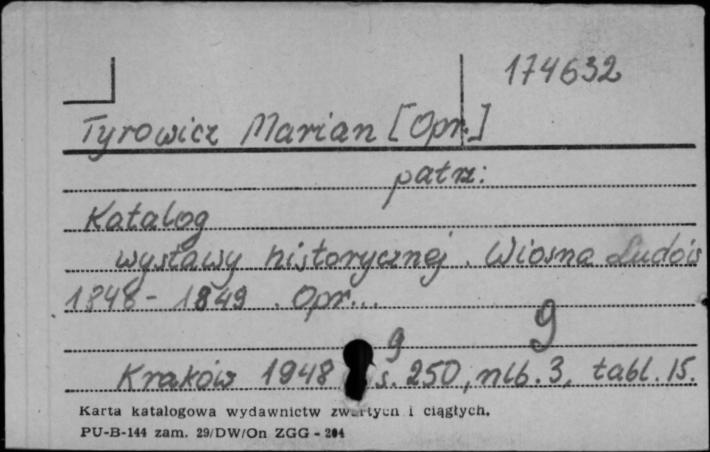 174632
Tyrowicz Marian [Opr.]
patrz:
Katalog
wystawy historycznej. Wiosna Ludów
1848-1849. Opr...
g
g
Kraków 1948 s. 250, nlb. 3, tabl. 15.
Karta katalogowa wydawnictw zwartych i ciągłych.
PU-B-144 zam. 29/DW/On ZGG - 204